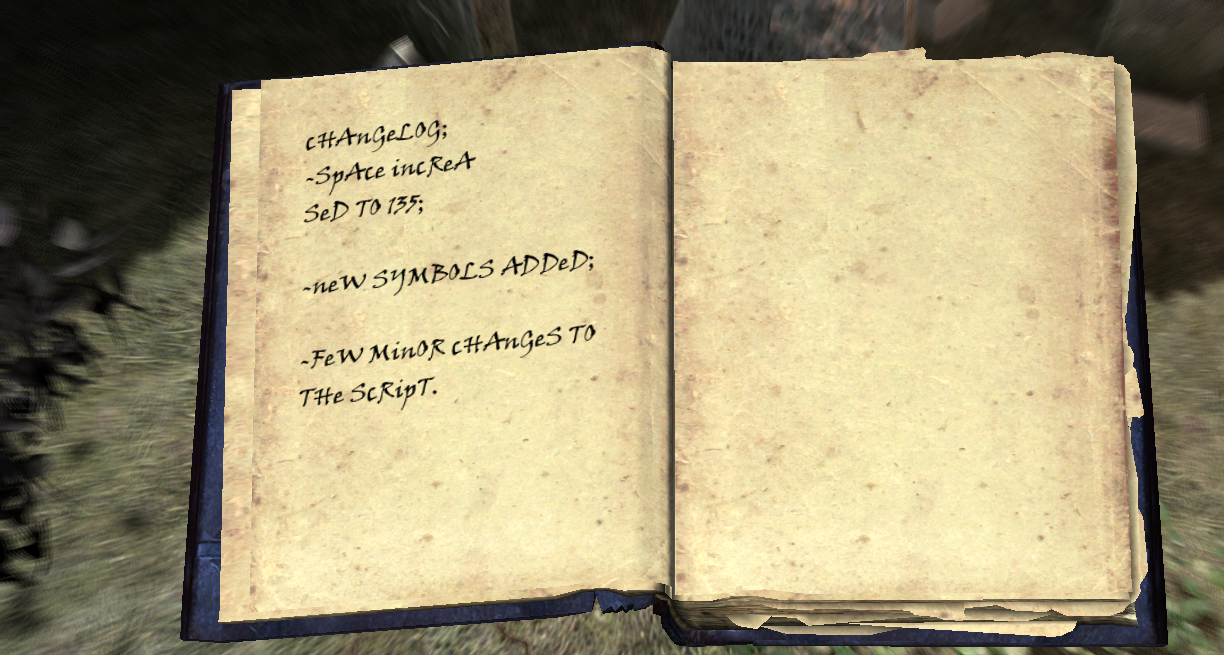 cHAnGeLOG;
-SpAce incReA
SeD TO 135;
-neW SYMBOLS ADDeD;
-FeW MinOR cHAnGeS TO
THe ScRipT.